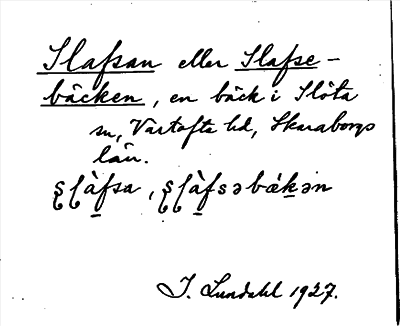 Slafsan eller Slafse-
bäcken, en bäck i Slöta
sn, Vartofta hd, Skaraborgs
län.
I. Lundahl 1927.